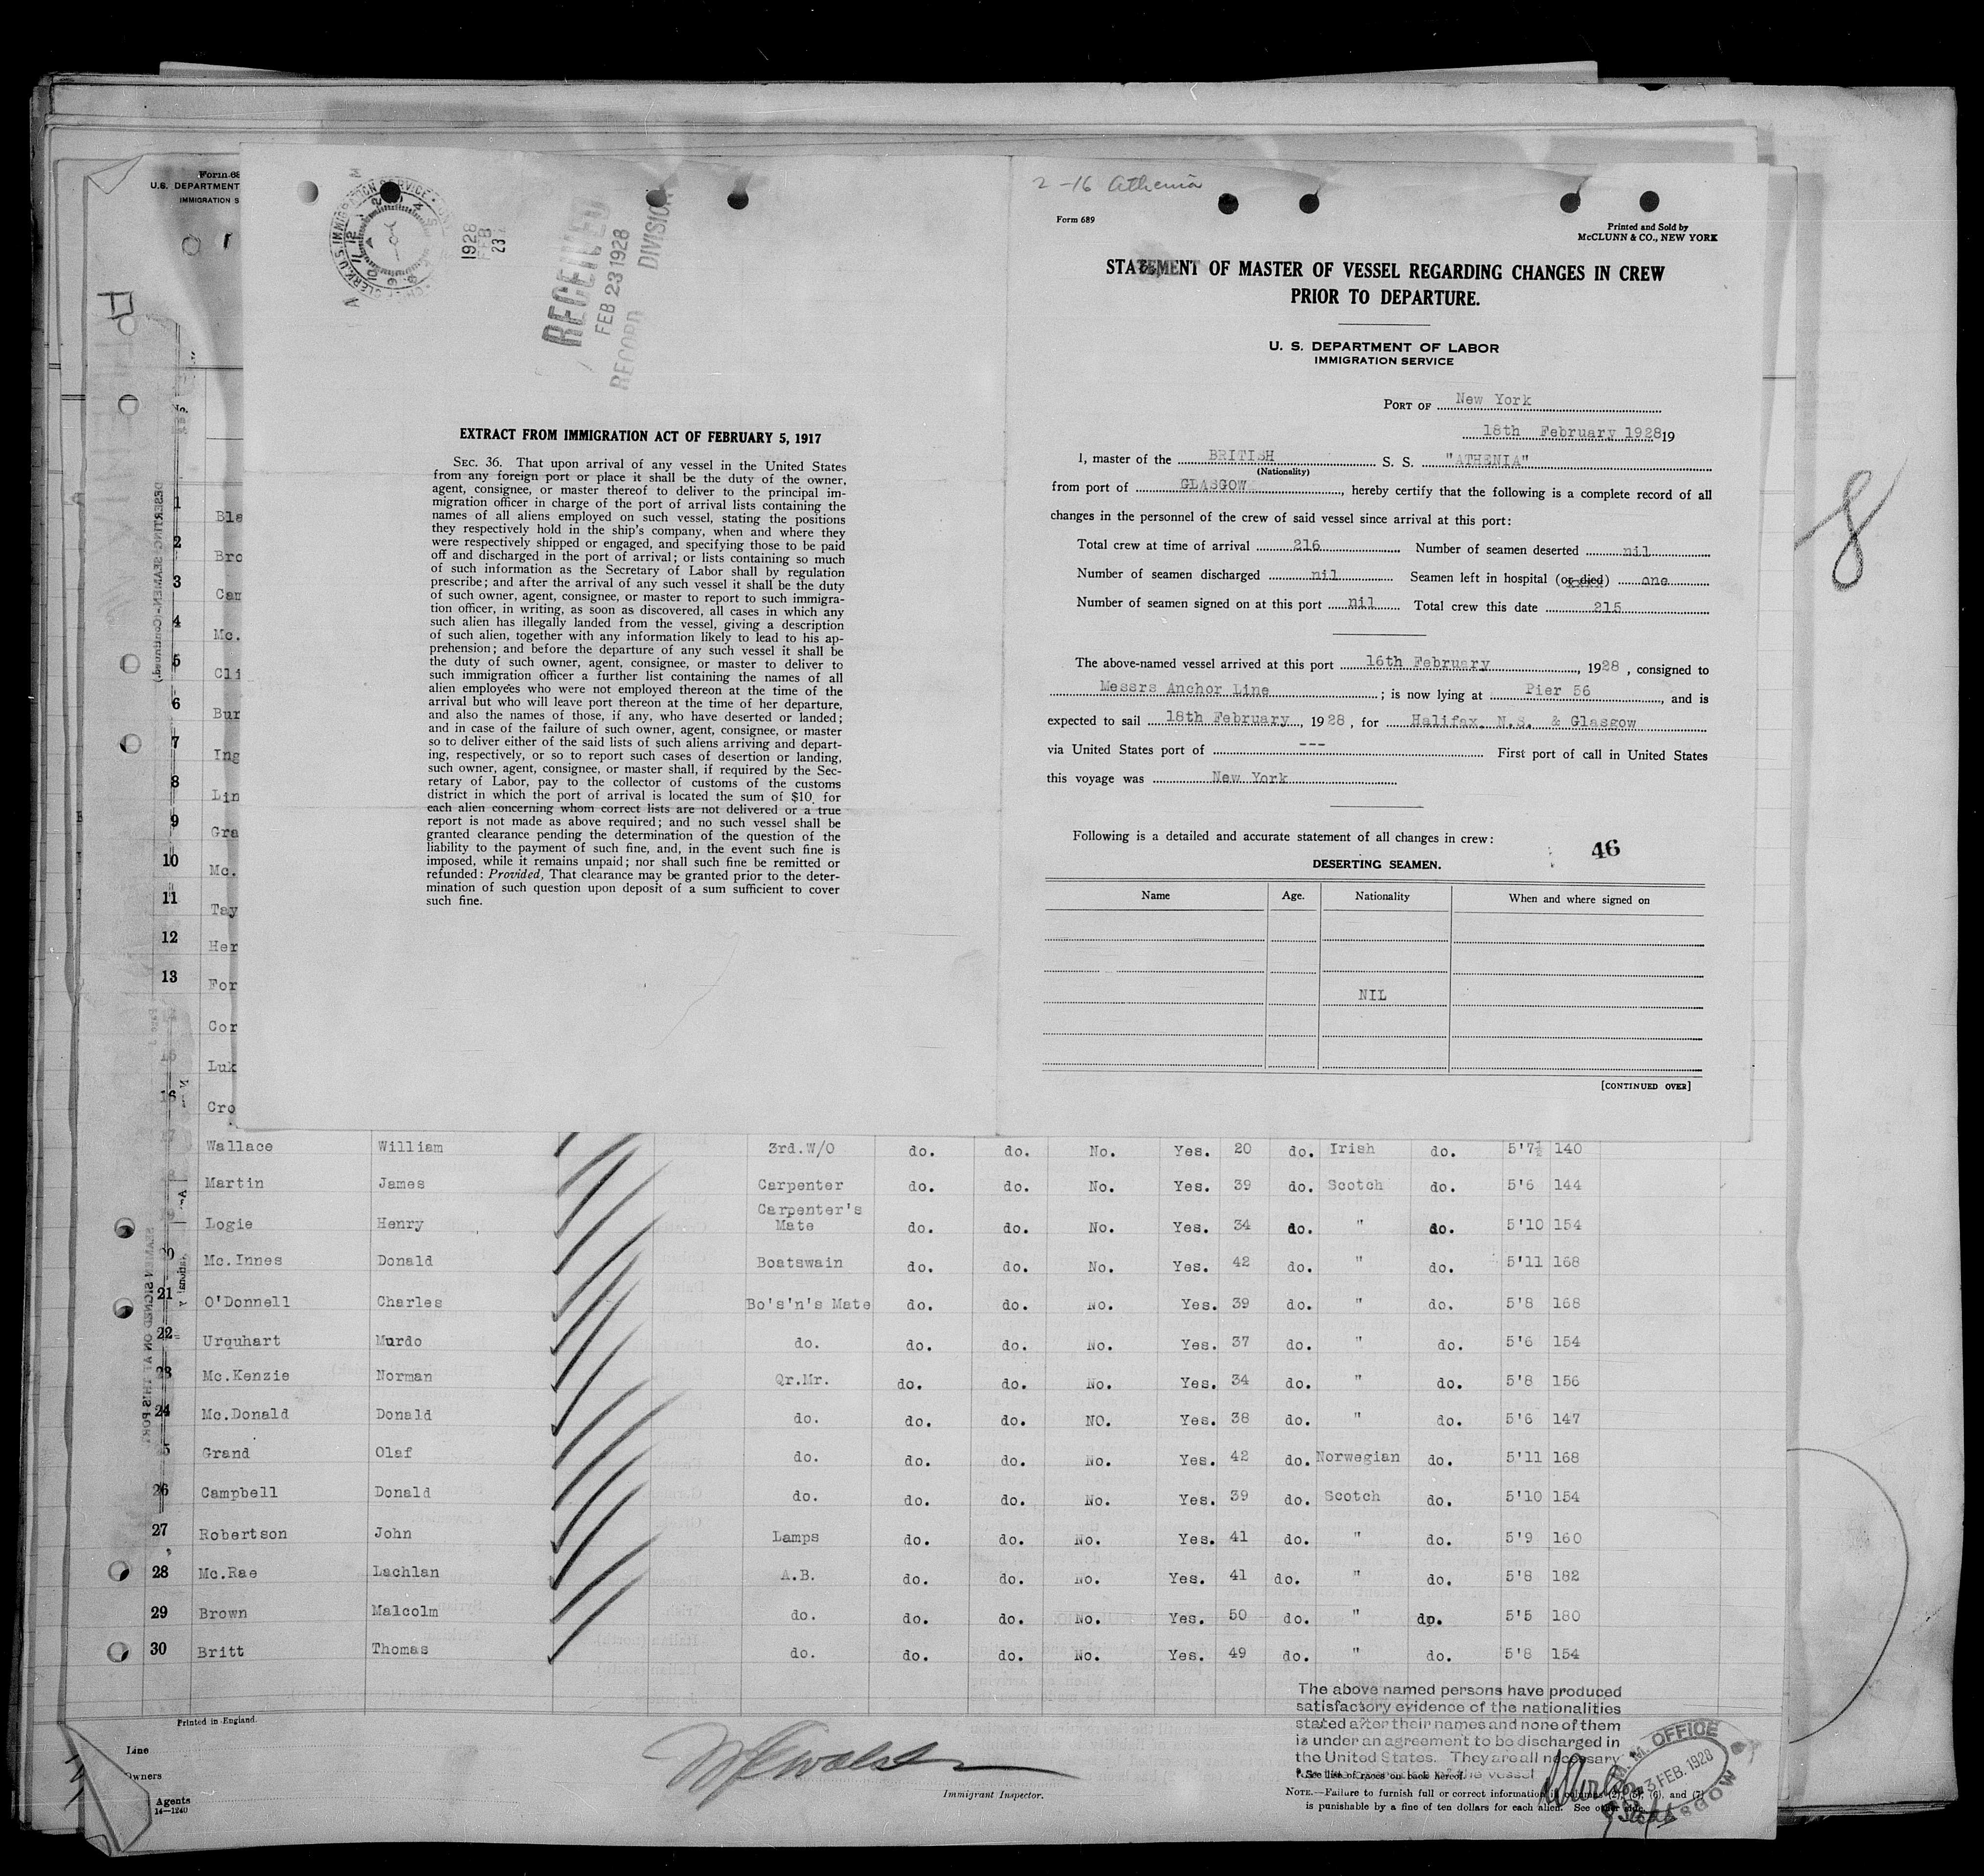 Form 68
U.S. DEPARTMENT
IMMIGRATION S
CLERK, U.S. IMMIGRATION SERVICE
1928
FEB
23
RECEIVED
FEB 23 1928
RECORD DIVISION
EXTRACT FROM IMMIGRATION ACT OF FEBRUARY 5, 1917
SEC. 36. That upon arrival of any vessel in the United States
from any foreign port or place it shall be the duty of the owner,
agent, consignee, or master thereof to deliver to the principal im-
migration officer in charge of the port of arrival lists containing the
names of all aliens employed on such vessel, stating the positions
they respectively hold in the ship's company, when and where they
were respectively shipped or engaged, and specifying those to be paid
off and discharged in the port of arrival; or lists containing so much
of such information as the Secretary of Labor shall by regulation
prescribe; and after the arrival of any such vessel it shall be the duty
of such owner, agent, consignee, or master to report to such immigra-
tion officer, in writing, as soon as discovered, all cases in which any
such alien has illegally landed from the vessel, giving a description
of such alien, together with any information likely to lead to his ap-
prehension; and before the departure of any such vessel it shall be
the duty of such owner, agent, consignee, or master to deliver to
such immigration officer a further list containing the names of all
alien employees who were not employed thereon at the time of the
arrival but who will leave port thereon at the time of her departure,
and also the names of those, if any, who have deserted or landed;
and in case of the failure of such owner, agent, consignee, or master
so to deliver either of the said lists of such aliens arriving and depart-
ing, respectively, or so to report such cases of desertion or landing,
such owner, agent, consignee, or master shall, if required by the Sec-
retary of Labor, pay to the collector of customs of the customs
district in which the port of arrival is located the sum of $10 for
each alien concerning whom correct lists are not delivered or a true
report is not made as above required; and no such vessel shall be
granted clearance pending the determination of the question of the
liability to the payment of such fine, and, in the event such fine is
imposed, while it remains unpaid; nor shall such fine be remitted or
refunded: Provided, That clearance may be granted prior to the deter-
mination of such question upon deposit of a sum sufficient to cover
such fine.
2-16 Athenia
Form 689
Printed and Sold by
McCLUNN & CO., NEW YORK
STATEMENT OF MASTER OF VESSEL REGARDING CHANGES IN CREW
PRIOR TO DEPARTURE.
U. S. DEPARTMENT OF LABOR
IMMIGRATION SERVICE
PORT OF New York
18th February 1928 19
I, master of the BRITISH S. S. "ATHENIA"
(Nationality)
from port of GLASGOW, hereby certify that the following is a complete record of all
changes in the personnel of the crew of said vessel since arrival at this port:
Total crew at time of arrival 216 Number of seamen deserted nil
Number of seamen discharged nil Seamen left in hospital (or died) one
Number of seamen signed on at this port nil Total crew this date 215
The above-named vessel arrived at this port 16th February, 1928, consigned to
Messrs Anchor Line; is now lying at Pier 56, and is
expected to sail 18th February, 1928, for Halifax, N.S. & Glasgow
via United States port of --- First port of call in United States
this voyage was New York
Following is a detailed and accurate statement of all changes in crew:
46
DESERTING SEAMEN.
Name Age. Nationality When and where signed on
NIL
[CONTINUED OVER]
8
No.
DESERTING SEAMEN—(Continued.)
1 Bla
2 Bro
3 Cam
4 Mc.
5 Cli
6 Bur
7 Ing
8 Lin
9 Gra
10 Mc.
11 Tay
12 Her
13 For
Cor
Luk
16 Cro
Wallace William 3rd.W/O do. do. No. Yes. 20 do. Irish do. 5'7½ 140
Martin James Carpenter do. do. No. Yes. 39 do. Scotch do. 5'6 144
Logie Henry Carpenter's Mate do. do. No. Yes. 34 do. " do. 5'10 154
Mc.Innes Donald Boatswain do. do. No. Yes. 42 do. " do. 5'11 168
21 O'Donnell Charles Bo's'n's Mate do. do. No. Yes. 39 do. " do. 5'8 168
22 Urquhart Murdo do. do. do. No. Yes. 37 do. " do. 5'6 154
23 Mc.Kenzie Norman Qr.Mr. do. do. No. Yes. 34 do. " do. 5'8 156
24 Mc.Donald Donald do. do. do. NO. Yes. 38 do. " do. 5'6 147
5 Grand Olaf do. do. do. No. Yes. 42 do. Norwegian do. 5'11 168
26 Campbell Donald do. do. do. No. Yes. 39 do. Scotch do. 5'10 154
27 Robertson John Lamps do. do. No. Yes. 41 do. " do. 5'9 160
28 Mc.Rae Lachlan A.B. do. do. No. Yes. 41 do. " do. 5'8 182
29 Brown Malcolm do. do. do. No. Yes. 50 do. " do. 5'5 180
30 Britt Thomas do. do. do. No. Yes. 49 do. " do. 5'8 154
SEAMEN SIGNED ON AT THIS PORT
The above named persons have produced
satisfactory evidence of the nationalities
stated after their names and none of them
is under an agreement to be discharged in
the United States. They are all necessary
of the vessel
Printed in England.
Line
Owners
Agents
14—1240
Immigrant Inspector.
* See list of races on back hereof.
NOTE.—Failure to furnish full or correct information in columns (2), (5), (6), and (7)
is punishable by a fine of ten dollars for each alien. See other side.
M. M. OFFICE
3 FEB. 1928
GLASGOW